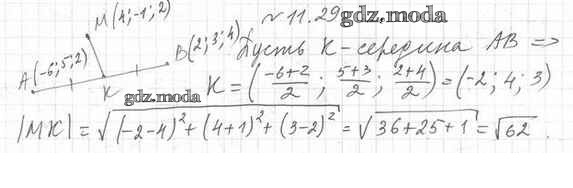 M(4;-1;2)
№ 11.29 gdz.moda
A(-6;5;2)
B(2;3;4)
K
Пусть K - середина AB =>
K = (-6+2/2; 5+3/2; 2+4/2) = (-2; 4; 3)
gdz.moda
|MK| = √(-2-4)²+(4+1)²+(3-2)² = √36+25+1 = √62